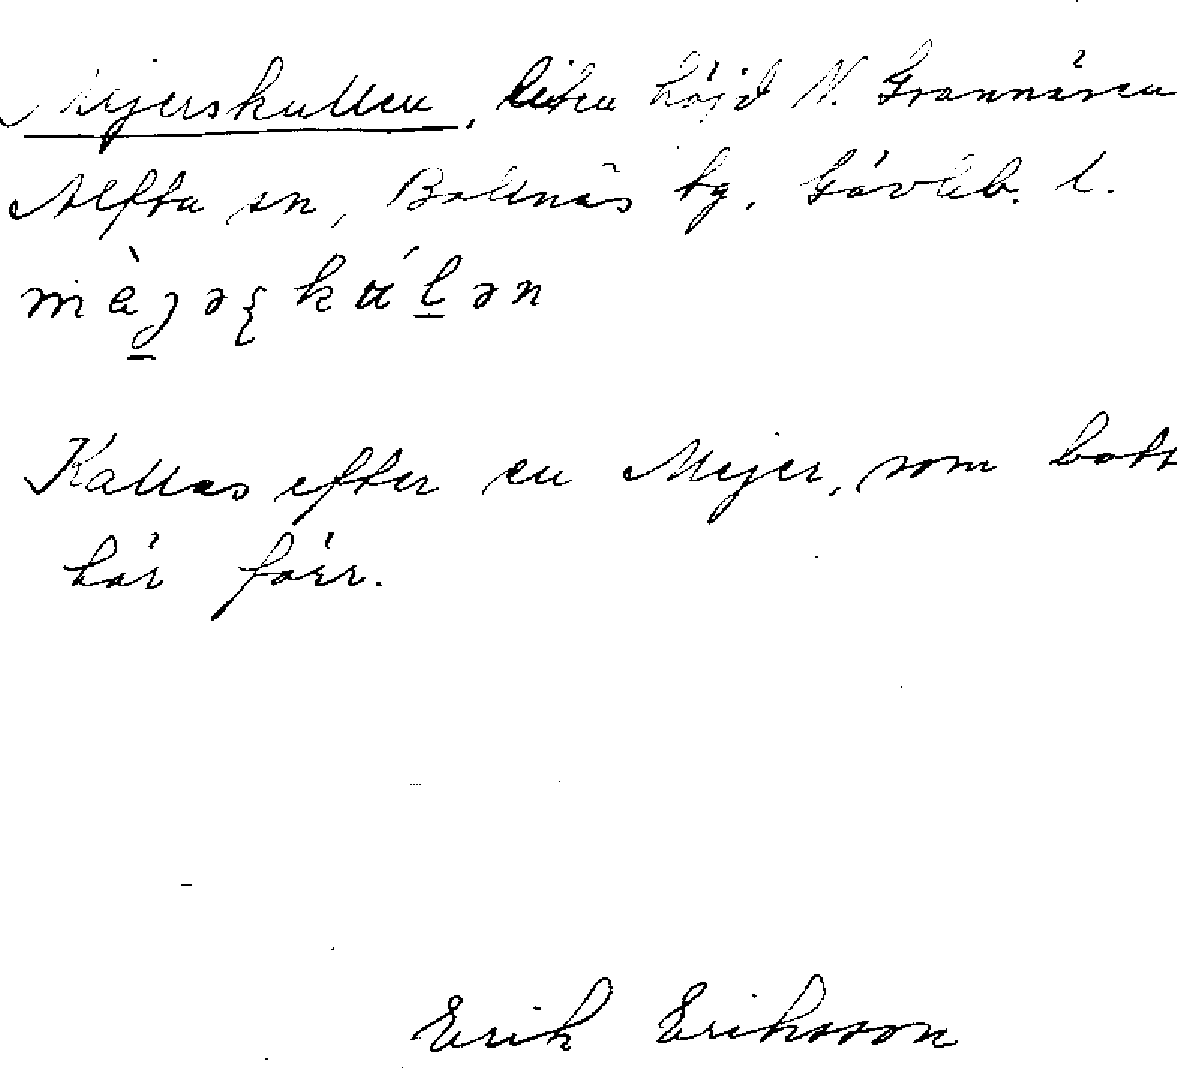 Mejerskullen, liten höjd N. Grannäsen
Alfta sn, Bollnäs tg, Gävleb. l.
Kallas efter en Mejer, som bott
här förr.
Erik Eriksson